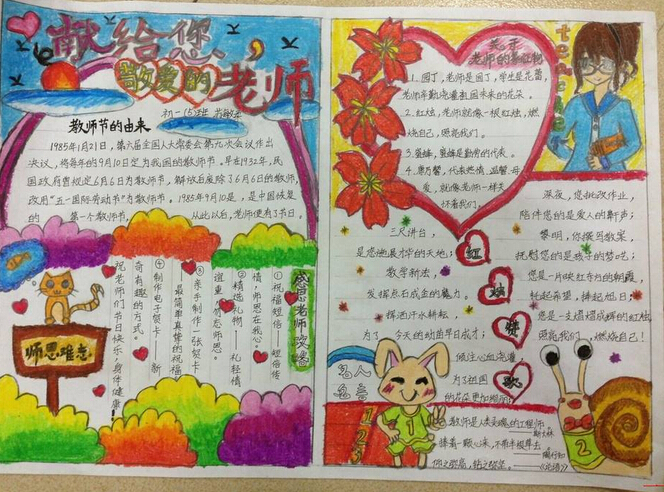 献给您，
敬爱的老师
初一(5)班
教师节的由来
1985年1月21日，第六届全国人大常委会第九次会议作出
决议，将每年的9月10日定为我国的教师节。早在1932年，民
国政府曾规定6月6日为教师节，解放后废除了6月6日的教师节，
改用"五一国际劳动节"为教师节。1985年9月10是，是中国恢复
的第一个教师节，从此以后，老师便有了节日。
感恩老师攻略
①祝福短信——短信传
情，师恩在我心。
②精选礼物——礼轻情
谊重，简意师恩。
③亲手制作一张贺卡
——最简单真挚的祝福
④制作电子贺卡——新
奇有趣的方式。
祝老师们节日快乐，身体健康！
师恩难忘
关于
老师的
teacher
1.园丁，老师是园丁，学生是花蕾，
老师辛勤浇灌祖国未来的花朵。
2.红烛，老师就像一根红烛，燃
烧自己，照亮我们。
3.蜜蜂，蜜蜂是勤劳的代表。
4.康乃馨，代表热情、温馨、母
爱，就像老师一样关
怀着我们。
三尺讲台，
是您施展才华的天地；
教学新法，
发挥点石成金的魔力。
挥洒汗水耕耘，
为了今天的幼苗早日成才；
倾注心血浇灌，
为了祖国
的花朵更加绚丽！
红
烛
赞
歌
深夜，您批改作业，
陪伴您的是爱人的鼾声；
黎明，你撰写教案，
抚慰您的是孩子的梦呓；
您是一片映红东方的朝霞，
托起希望，捧起旭日；
您是一支熠熠成辉的红烛，
照亮我们，燃烧自己！
名人
名言
123
1
2
教师是人类灵魂的工程师
——斯大林
捧着一颗心来，不带半根草去
——陶行知
仰之弥高，钻之弥坚
——《论语》